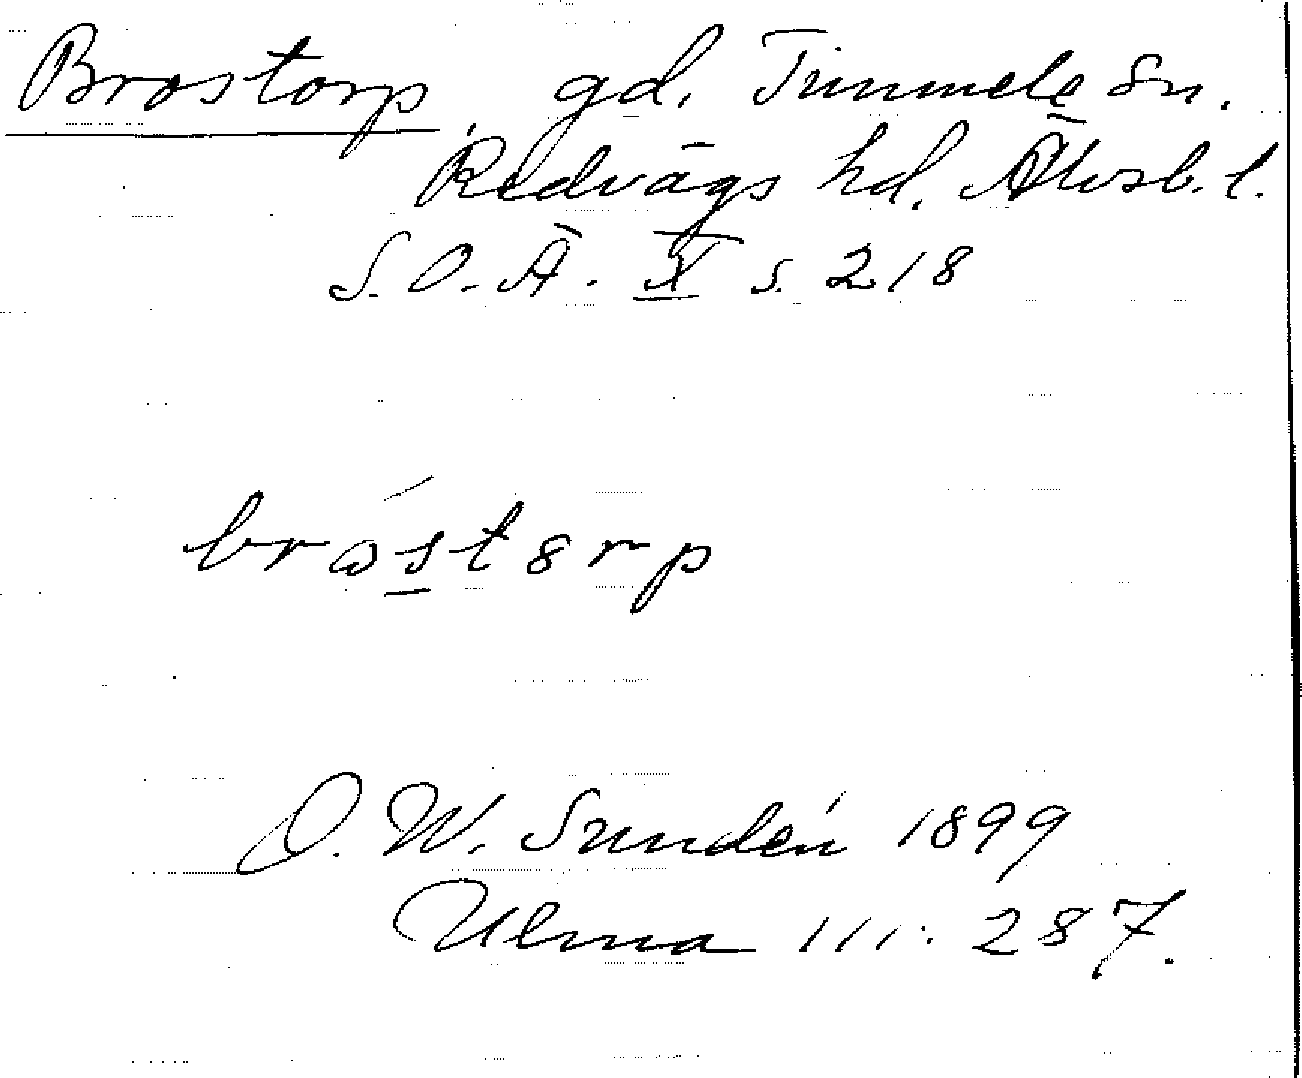 Brostorp, gd. Timmele sn.
Redvägs hd. Älvsb. l.
S. O. Ä. X s. 218
O. W. Sundén 1899
Ulma 111:287.